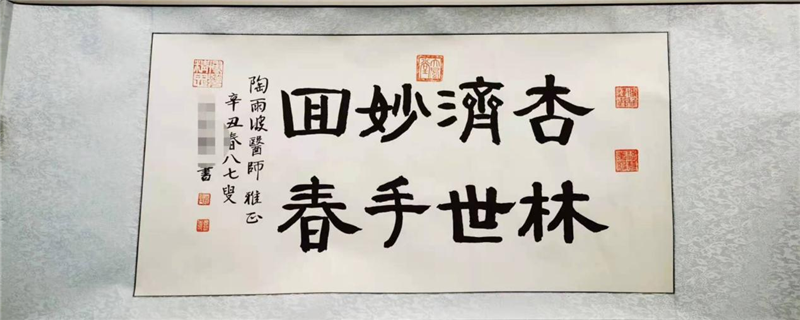 杏林
濟世
妙手
回春
陶雨波醫師 雅正
辛丑春八七叟
書